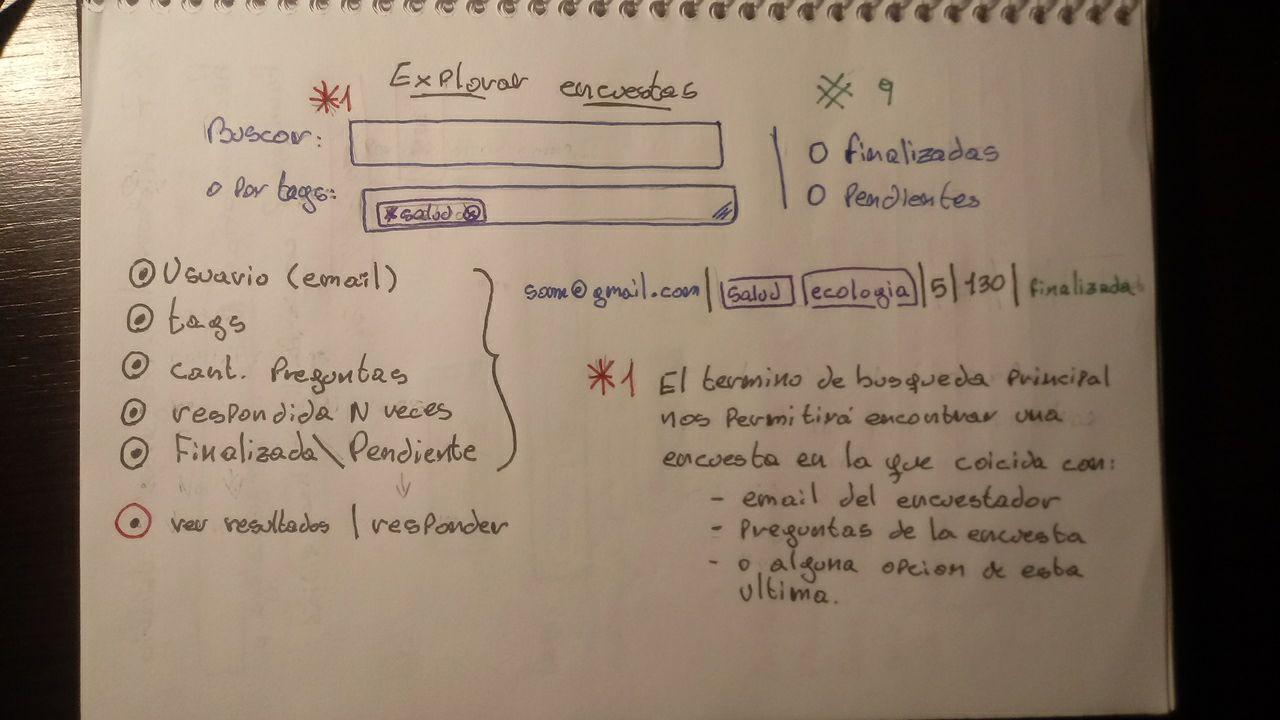 Explorar encuestas
*1
# 9
Buscar:
O finalizadas
o por tags:
*salud
O Pendientes
Usuario (email)
tags
cant. Preguntas
respondida N veces
Finalizada\Pendiente
ver resultados | responder
some@gmail.com | salud ecologia | 5 | 130 | finalizada
*1 El termino de busqueda principal
nos Permitirá encontrar una
encuesta en la que coicida con:
- email del encuestador
- Preguntas de la encuesta
- o alguna opcion de esta
ultima.